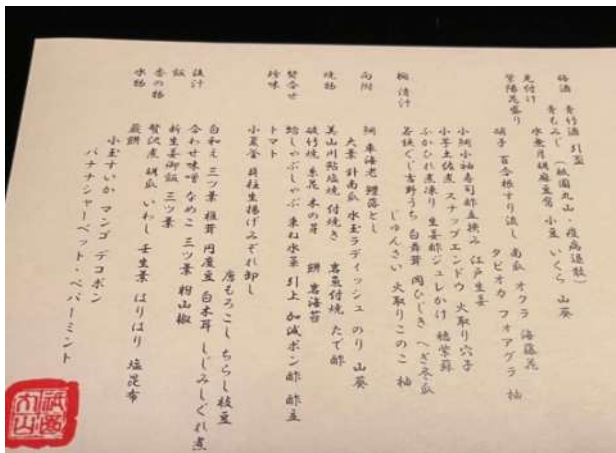 梅酒 青竹酒 引盃
青もみじ (祇園丸山・疫病退散)
先付け 水無月胡麻豆腐 小豆 いくら 山葵
紫陽花盛り 硝子 百合根すり流し 南瓜 オクラ 海藤花
タピオカ フォアグラ 柚
小鯛小袖寿司酢立挟み はじかみ生姜
小芋土佐煮 スナップエンドウ 火取り穴子
ふかひれ煮凍り 生姜酢ジュレかけ 穂紫蘇
椀 清汁 若狭ぐじ吉野うち 白舞茸 岡ひじき へぎ冬瓜
じゅんさい 火取りこのこ 柚
向附 鯛 車海老 鱧落とし
大葉 針南瓜 水玉ラディッシュ のり 山葵
焼物 美山川鮎塩焼 付焼き 若魚付焼 たで酢
破竹焼 糸花 木の芽 餅 岩海苔
焚合せ 蛤しゃぶしゃぶ 束ね水菜 引上 加減ポン酢 酢立
トマト
珍味 小夏釜 貝柱生揚げみぞれ卸し
唐もろこし ちらし枝豆
白和え 三ツ葉 椎茸 円度豆 白木耳 しじみしぐれ煮
留汁 合わせ味噌 なめこ 三ツ葉 粉山椒
飯 新生姜御飯 三ツ葉
香の物 贅沢煮 胡瓜 いわし 壬生菜 はりはり 塩昆布
水物 蕨餅
小玉すいか マンゴ デコポン
バナナシャーベット・ペパーミント
祇園丸山